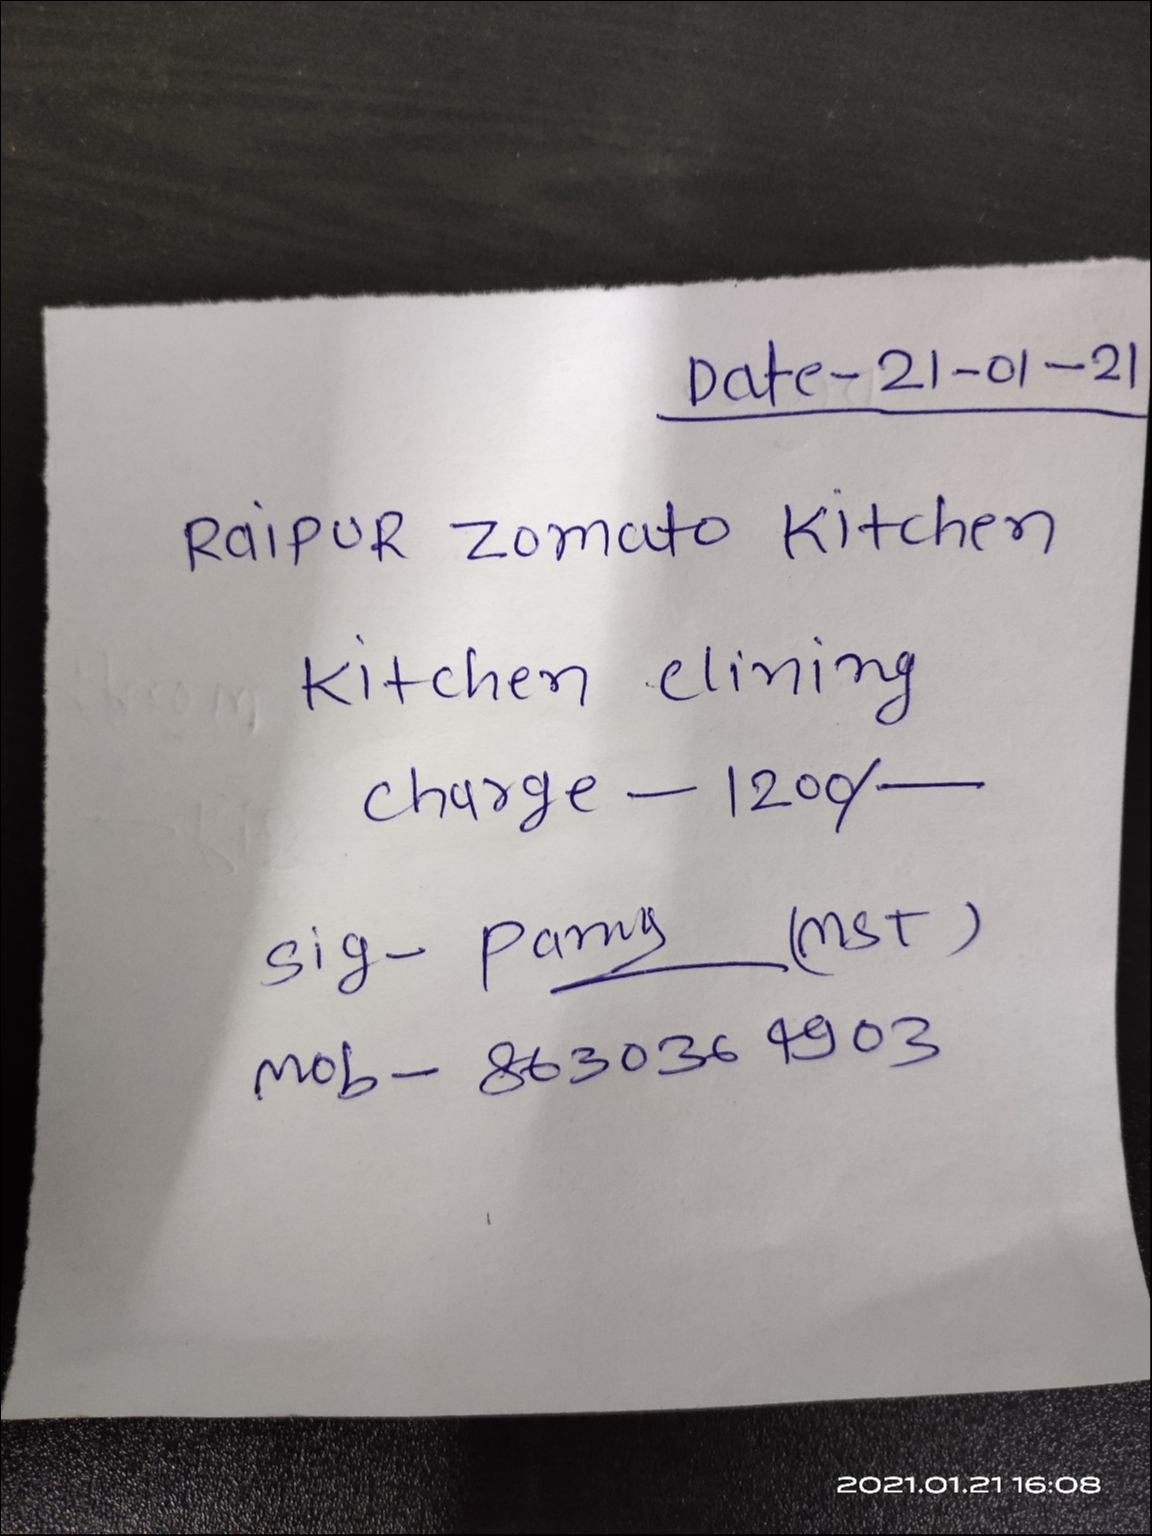 Date-21-01-21
RaiPUR Zomato Kitchen
Kitchen clining
charge — 1200/—
sig- (MST)
Mob- 8630364903
2021.01.21 16:08